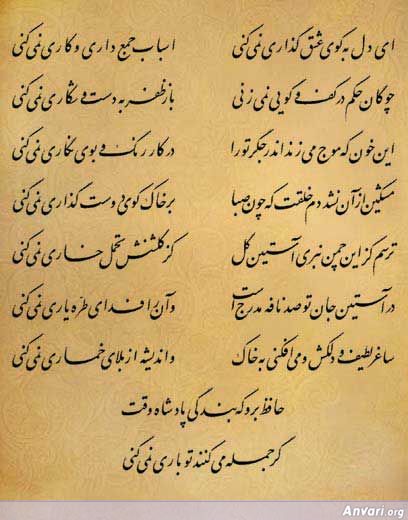 ای دل به کوی عشق گذاری نمی‌کنی اسباب جمع داری و کاری نمی‌کنی
چوگان حکم در کف و گویی نمی‌زنی باز ظفر به دست و شکاری نمی‌کنی
این خون که موج می‌زند اندر جگر تو را در کار رنگ و بوی نگاری نمی‌کنی
مشکین از آن نشد دم خلقت که چون صبا بر خاک کوی دوست گذاری نمی‌کنی
ترسم کز این چمن نبری آستین گل کز گلشنش تحمل خاری نمی‌کنی
در آستین جان تو صد نافه مدرج است وآن را فدای طره یاری نمی‌کنی
ساغر لطیف و دلکش و می افکنی به خاک و اندیشه از بلای خماری نمی‌کنی
حافظ برو که بندگی پادشاه وقت
گر جمله می‌کنند تو باری نمی‌کنی
Anvari.org